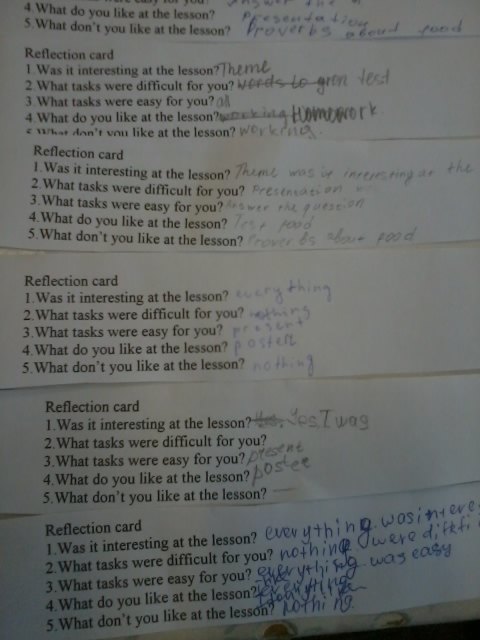 4 What do you like at the lesson? Presentation
5. What don't you like at the lesson? Proverbs about food
Reflection card
1 Was it interesting at the lesson? Theme
2 What tasks were difficult for you? words to gron test
3 What tasks were easy for you? all
4 What do you like at the lesson? working Homework
What don't you like at the lesson? working.
Reflection card
1. Was it interesting at the lesson? Theme was it interesting at the
2 What tasks were difficult for you? Presentation
3. What tasks were easy for you? answer the question
4. What do you like at the lesson? Test food
5. What don't you like at the lesson? Proverbs about food
Reflection card
1. Was it interesting at the lesson? everything
2. What tasks were difficult for you? nothing
3. What tasks were easy for you? present
4. What do you like at the lesson? poster
5. What don't you like at the lesson? nothing
Reflection card
1. Was it interesting at the lesson? Yes. I was
2. What tasks were difficult for you?
3. What tasks were easy for you? present
4. What do you like at the lesson? poster
5. What don't you like at the lesson? —
Reflection card
1 Was it interesting at the lesson? everything was
2. What tasks were difficult for you? nothing were
3. What tasks were easy for you? everything was easy
4. What do you like at the lesson? everything
5. What don't you like at the lesson? nothing.